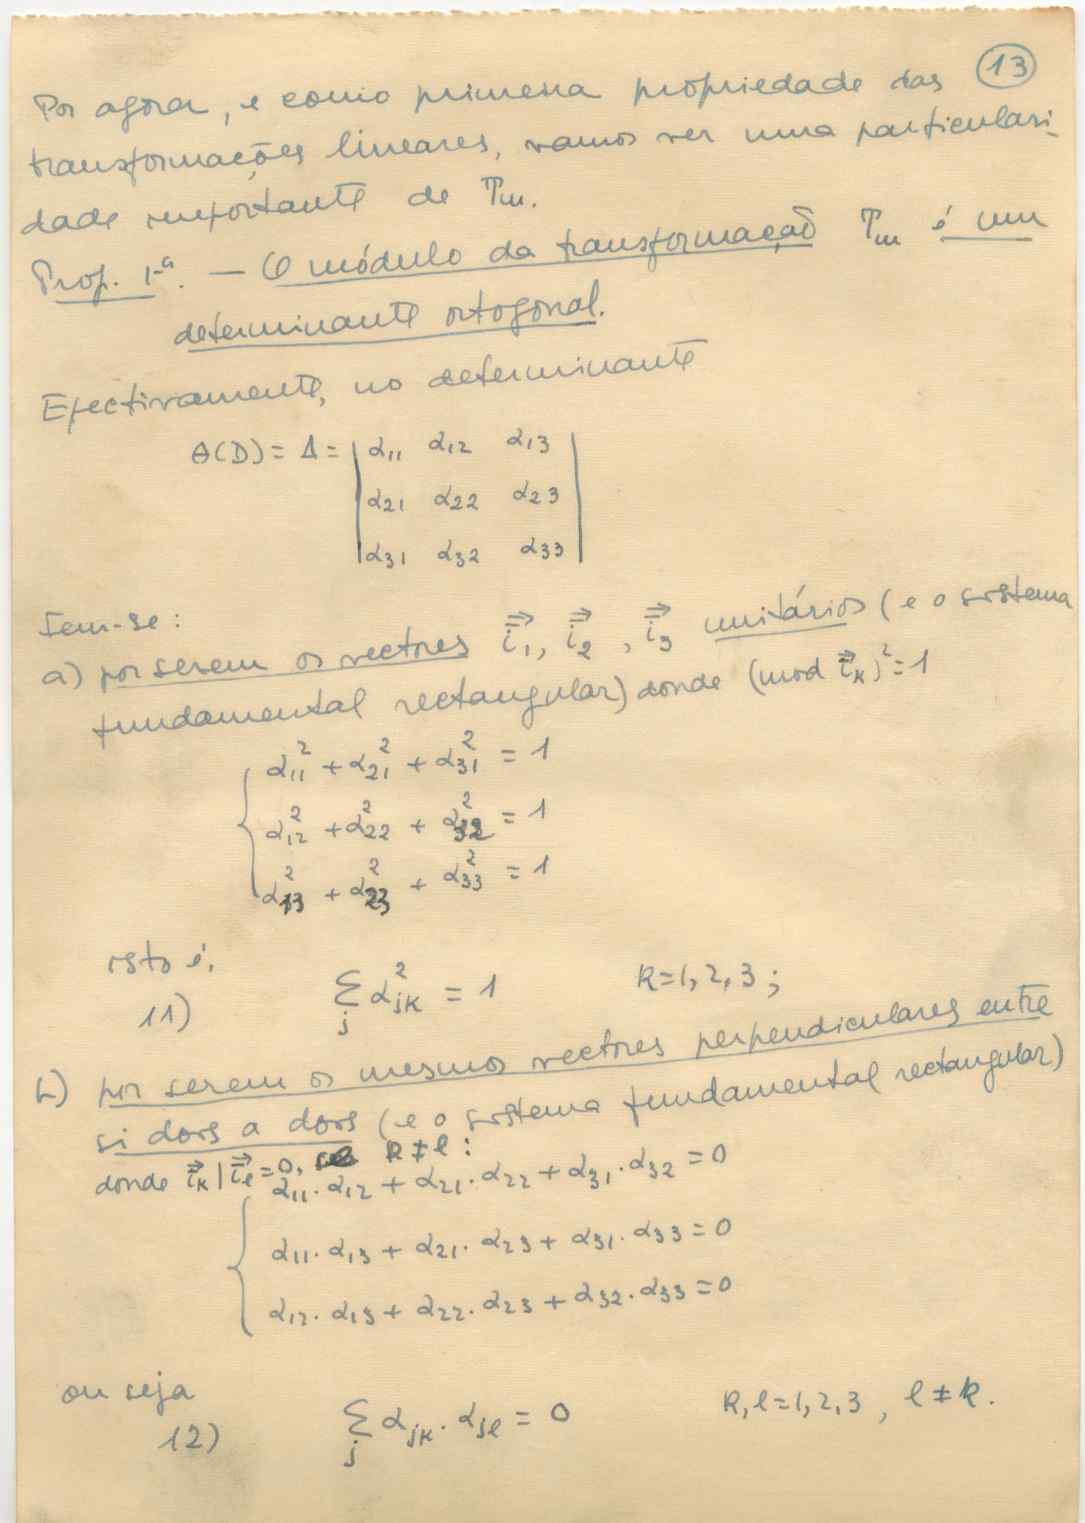 13
Por agora, e como primeira propriedade das
transformações lineares, vamos ver uma particulari-
dade importante de Tm.
Prop. 1ª. — O módulo da transformação Tm é um
determinante ortogonal.
Efectivamente, no determinante
θ(D) = Δ = | α11 α12 α13 |
| α21 α22 α23 |
| α31 α32 α33 |
Tem-se:
a) por serem os vectores i⃗1, i⃗2, i⃗3 unitários (e o sistema
fundamental rectangular) donde (mod i⃗k)² = 1
α11² + α21² + α31² = 1
α12² + α22² + α32² = 1
α13² + α23² + α33² = 1
isto é,
11) Σj αjk² = 1 k=1,2,3;
b) por serem os mesmos vectores perpendiculares entre
si dois a dois (e o sistema fundamental rectangular)
donde i⃗k | i⃗l = 0, k ≠ l :
α11 . α12 + α21 . α22 + α31 . α32 = 0
α11 . α13 + α21 . α23 + α31 . α33 = 0
α12 . α13 + α22 . α23 + α32 . α33 = 0
ou seja
12) Σj αjk . αjl = 0 k, l = 1,2,3 , l ≠ k.